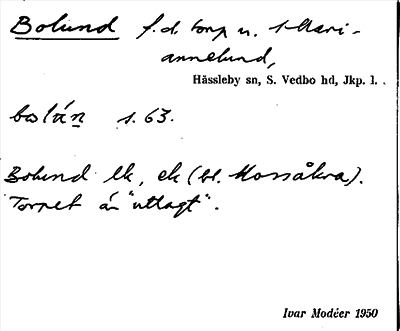 Bolund f.d. torp u. Mari-
annelund,
Hässleby sn, S. Vedbo hd, Jkp. l.
s. 63.
Bolund lk, ek (bl. Mossåkra).
Torpet än "utlagt".
Ivar Modéer 1950